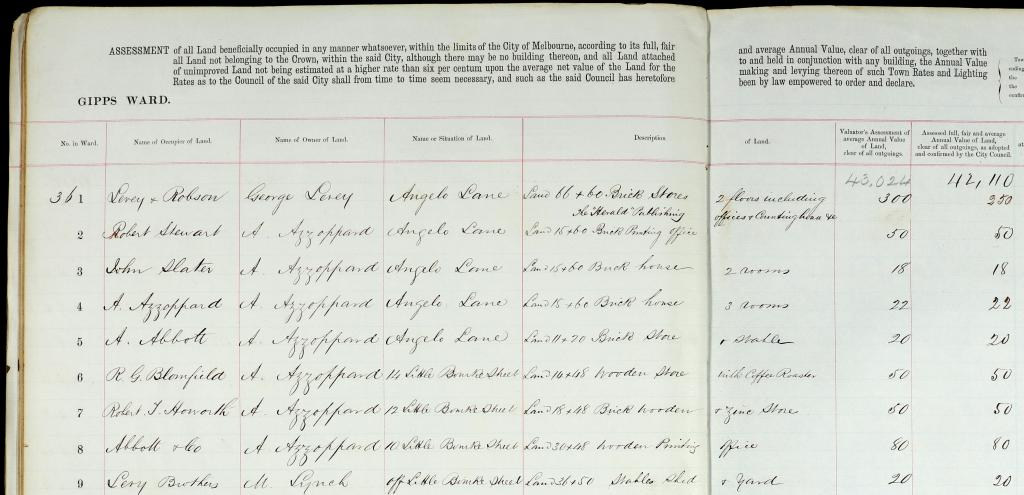 ASSESSMENT of all Land beneficially occupied in any manner whatsoever, within the limits of the City of Melbourne, according to its full, fair
all Land not belonging to the Crown, within the said City, although there may be no building thereon, and all Land attached
of unimproved Land not being estimated at a higher rate than six per centum upon the average net value of the Land for the
Rates as to the Council of the said City shall from time to time seem necessary, and such as the said Council has heretofore
and average Annual Value, clear of all outgoings, together with
to and held in conjunction with any building, the Annual Value
making and levying thereof of such Town Rates and Lighting
been by law empowered to order and declare.
GIPPS WARD.
No. in Ward. Name of Occupier of Land. Name of Owner of Land. Name or Situation of Land. Description of Land. Valuator's Assessment of average Annual Value of Land, clear of all outgoings. Assessed full, fair and average Annual Value of Land, clear of all outgoings, as adopted and confirmed by the City Council.
43,024 42,110
361 Levey & Robson George Levey Angelo Lane Land 66 x 60 Brick Stores 2 floors including 300 250
The "Herald" Publishing offices & Countinghouse &c
2 Robert Stewart A. Azzoppard Angelo Lane Land 15 x 60 Brick Printing office 50 50
3 John Slater A. Azzoppard Angelo Lane Land 15 x 60 Brick house 2 rooms 18 18
4 A. Azzoppard A. Azzoppard Angelo Lane Land 15 x 60 Brick house 3 rooms 22 22
5 A. Abbott A. Azzoppard Angelo Lane Land 11 x 70 Brick Store & Stable 20 20
6 R. G. Blomfield A. Azzoppard 14 Little Bourke Street Land 14 x 48 Wooden Store with Coffee Roaster 50 50
7 Robert T. Howorth A. Azzoppard 12 Little Bourke Street Land 18 x 48 Brick wooden & zinc Store 50 50
8 Abbott & Co A. Azzoppard 10 Little Bourke Street Land 30 x 48 Wooden Printing office 80 80
9 Levy Brothers M. Lynch off Little Bourke Street Land 36 x 50 Stables Shed & Yard 20 20